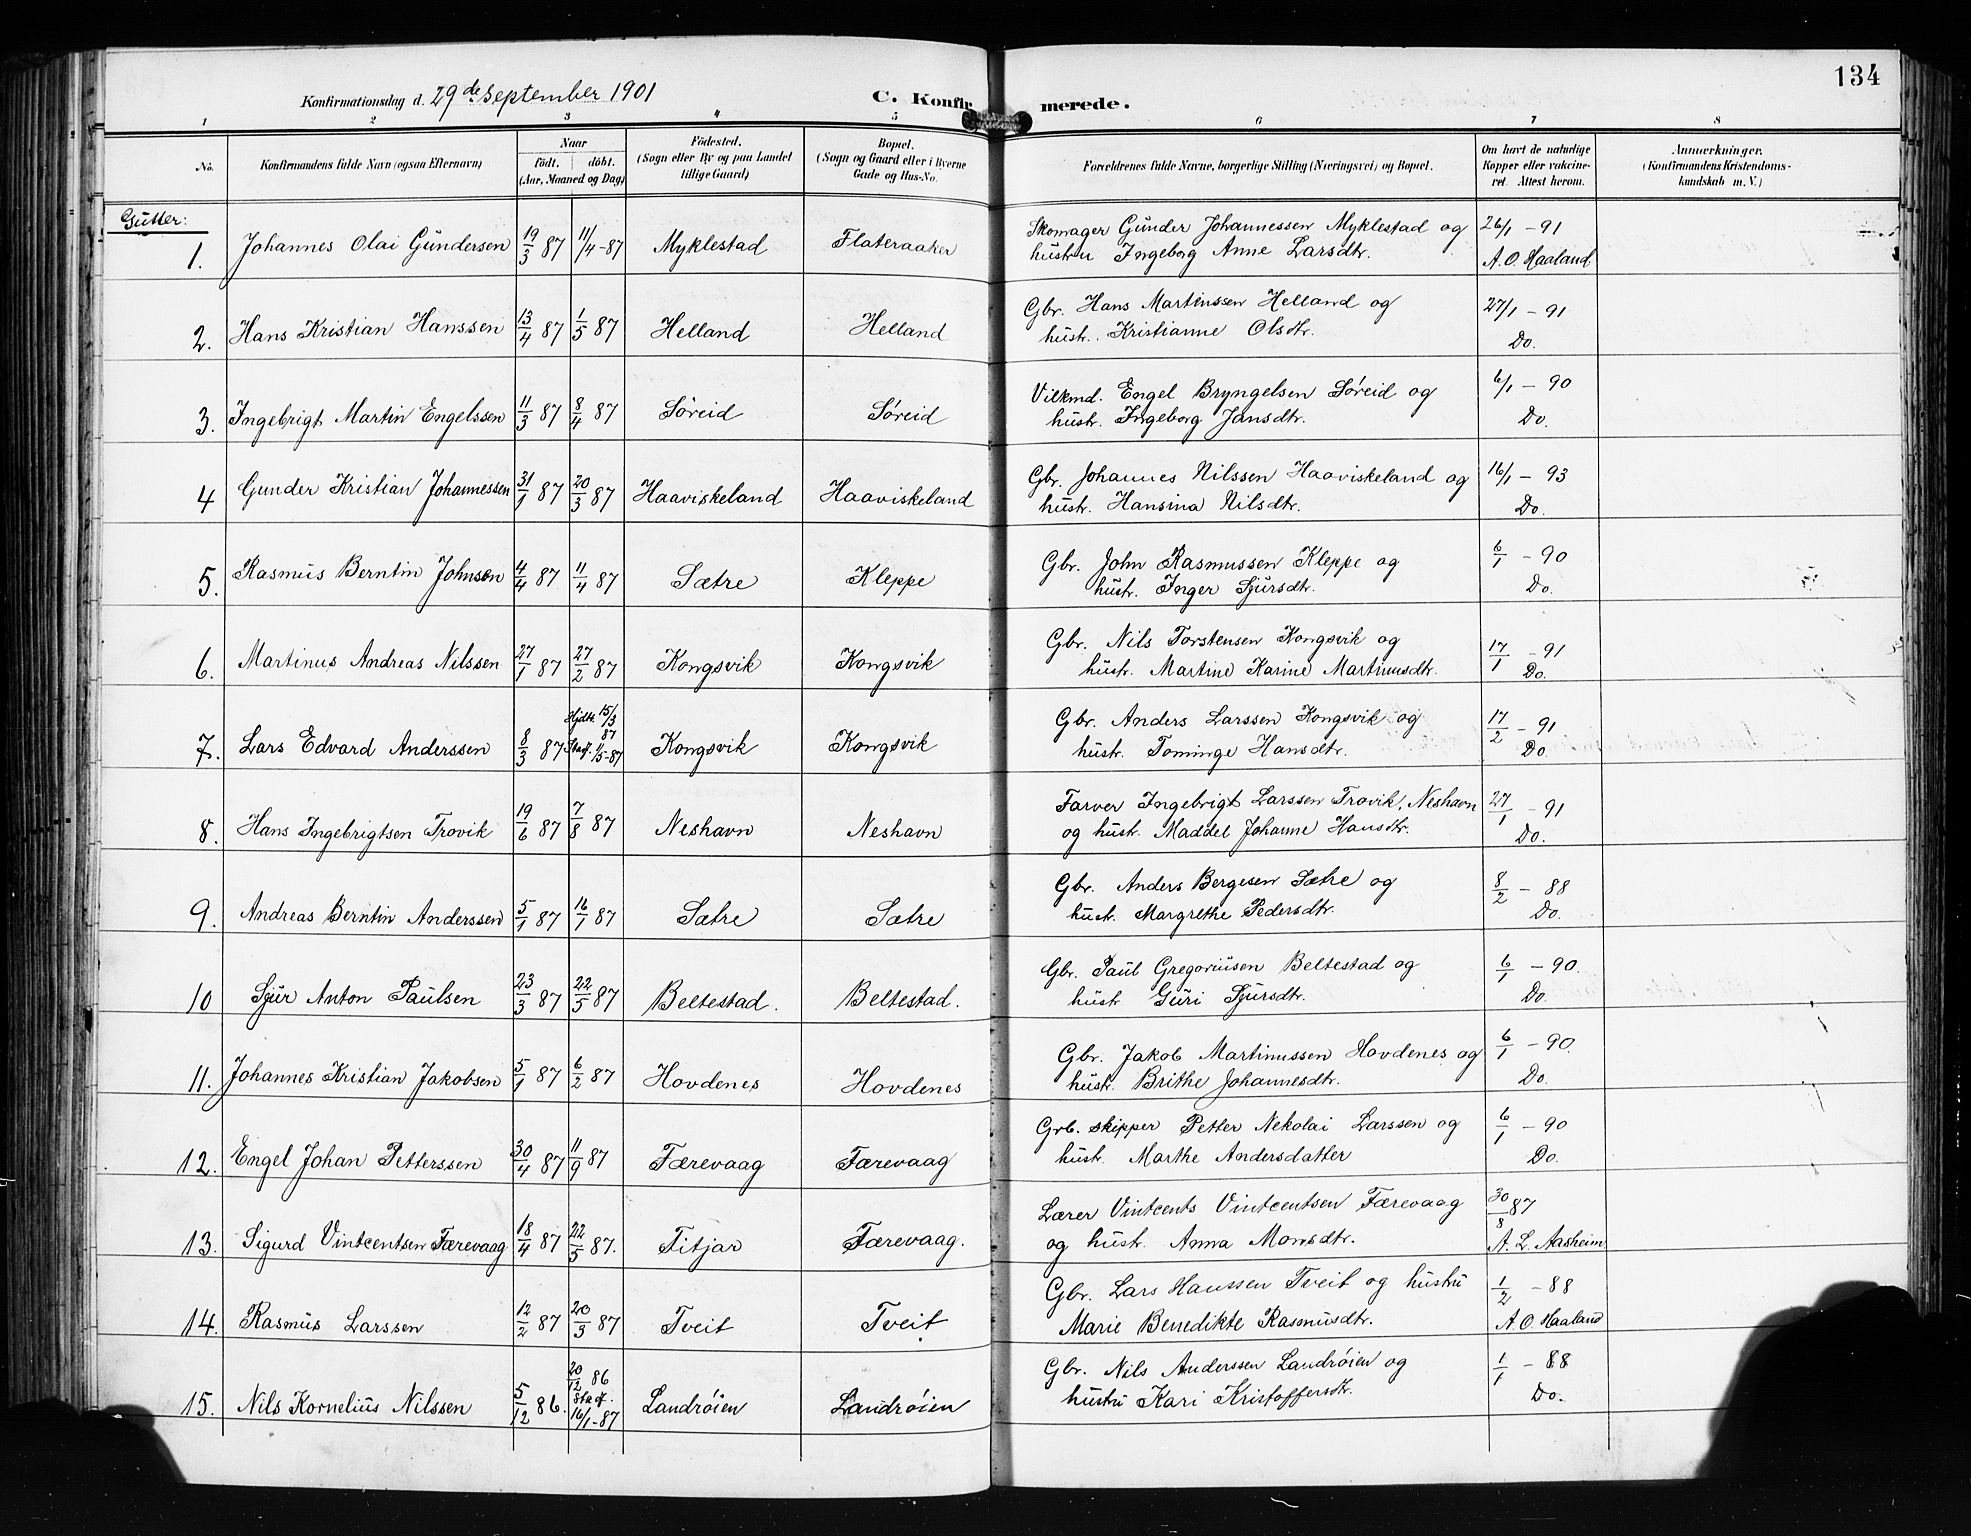 134
Konfirmationsdag d. 29de september 1901 C. Konfirmerede.
1 2 3 4 5 6 7 8
No. Konfirmandens fulde Navn (ogsaa Efternavn) Naar födt. döbt. (Aar, Maaned og Dag) Födested. (Sogn eller By og paa Landet tillige Gaard) Bopæl. (Sogn og Gaard eller i Byerne Gade og Hus-No. Forældrenes fulde Navne, borgerlige Stilling (Næringsvei) og Bopæl. Om havt de naturlige Kopper eller vakcineret. Attest herom. Anmærkninger. (Konfirmandens Kristendomskundskab m. V.)
Gutter:
1. Johannes Olai Gundersen 19/3 87 11/4-87 Myklestad Flateraaker Skomager Gunder Johannessen Myklestad og 26/1 - 91
hustru Ingeborg Anne Larsdtr. A. O. Haaland
2. Hans Kristian Hanssen 13/4 87 1/5 87 Helland Helland Gbr. Hans Martinssen Helland og 27/1 - 91
hustr. Kristianne Olsdtr. Do.
3. Ingebrigt Martin Engelssen 11/3 87 8/4 87 Söreid Söreid Vilkmd. Engel Bryngelsen Söreid og 6/1 - 90
hustr. Ingeborg Jansdtr. Do.
4 Gunder Kristian Johannessen 31/1 87 20/3 87 Haaviskeland Haaviskeland Gbr. Johannes Nilssen Haaviskeland og 16/1 - 93
hustr. Hansina Nilsdtr. Do.
5. Rasmus Berntin Johnsen 4/4 87 11/4 87 Sætre Kleppe Gbr. John Rasmussen Kleppe og 6/1 - 90
hustr. Inger Sjursdtr. Do.
6. Martinus Andreas Nilssen 27/1 87 27/2 87 Kongsvik Kongsvik Gbr. Nils Torstensen Kongsvik og 17/1 - 91
hustr. Martine Karine Martinusdtr. Do.
7. Lars Edvard Anderssen 8/3 87 Hjdbt. 15/3 87 Stadf. 1/5-87 Kongsvik Kongsvik Gbr. Anders Larssen Kongsvik og 17/2 - 91
hustr. Tominge Hansdtr. Do.
8. Hans Ingebrigtsen Trovik 19/6 87 7/8 87 Neshavn Neshavn Farver Ingebrigt Larssen Trovik, Neshavn 27/1 - 91
og hustr. Maddel Johanne Hansdtr. Do.
9. Andreas Berntin Anderssen 5/1 87 16/1 87 Sætre Sætre Gbr. Anders Bergesen Sætre og 8/2 - 88
hustr. Margrethe Pedersdtr. Do.
10 Sjur Anton Paulsen 23/3 87 22/5 87 Beltestad. Beltestad. Gbr. Paul Gregoriusen Beltestad og 6/1 - 90.
hustr. Guri Sjursdtr. Do.
11. Johannes Kristian Jakobsen 5/1 87 6/2 87 Hovdenes Hovdenes Gbr. Jakob Martinussen Hovdenes og 6/1 - 90.
hustr. Brithe Johannesdtr. Do.
12. Engel Johan Petterssen 30/4 87 11/9 87 Færevaag Færevaag Grb. skipper Petter Nekolai Larssen og 6/1 - 90
hust. Marthe Andersdatter Do.
13. Sigurd Vintcentsen Færevaag 18/4 87 22/5 87. Fitjar Færevaag. Lærer Vintcents Vintcentsen Færevaag 30/8 87
og hustr. Anna Monsdtr. A. L. Aasheim
14. Rasmus Larssen 12/2 87 20/3 87 Tveit Tveit Gbr. Lars Hanssen Tveit og hustru 1/2 - 88
Marie Benedikte Rasmusdtr. A. O. Haaland
15. Nils Kornelius Nilssen 5/12 86. 20/12 86 Stadf. 16/1-87 Landröien Landröien Gbr. Nils Anderssen Landröien og 1/1 - 88
hustru Kari Kristoffersdtr. Do.